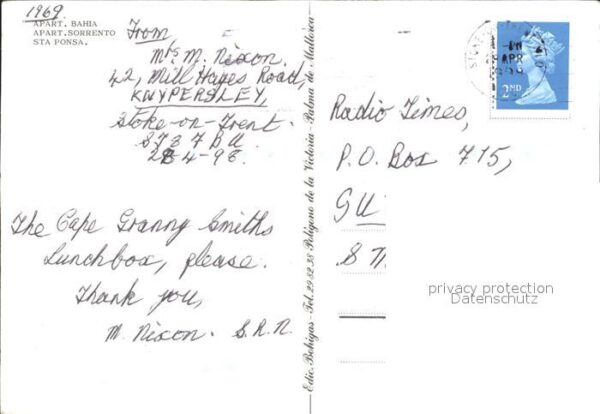 1969
APART. BAHIA
APART. SORRENTO
STA PONSA.
From
Mrs M. Nixon.
42, Mill Hayes Road,
KNYPERSLEY,
Stoke-on-Trent.
ST8 7BU
28-4-98.
The Cape Granny Smiths
Lunchbox, please.
Thank you,
M. Nixon. S.R.N.
Edic. Bohigas - Tel. 29 82 38 Poligono de la Victoria - Palma de Mallorca
APR
2ND
Radio Times,
P.O. Box 715,
GU
S
privacy protection
Datenschutz